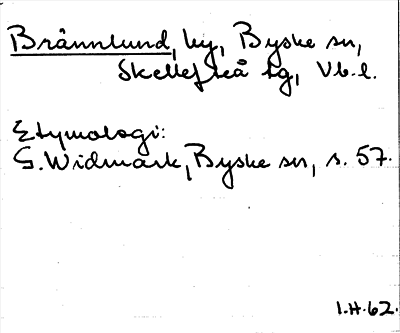 Brännlund, by, Byske sn,
Skellefteå tg, Vb.l.
Etymologi:
G. Widmark, Byske sn, s. 57.
I.H.62.